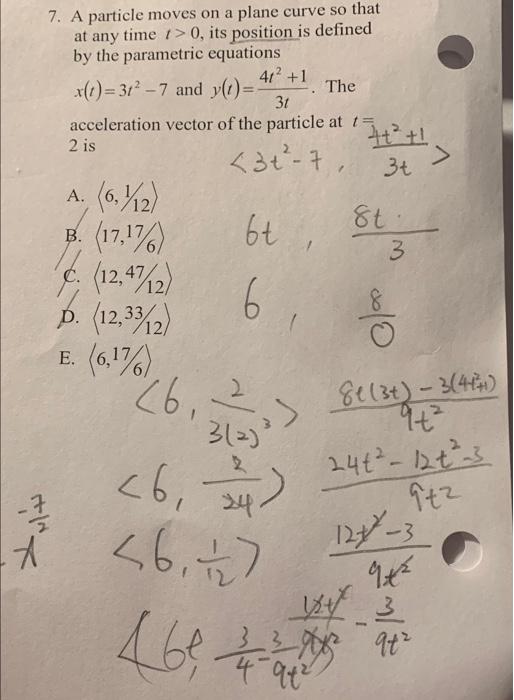 7. A particle moves on a plane curve so that
at any time t > 0, its position is defined
by the parametric equations
x(t) = 3t² – 7 and y(t) = (4t² + 1)/3t. The
acceleration vector of the particle at t =
2 is
<3t² - 7, (4t² + 1)/3t>
A. ⟨6, 1/12⟩
B. ⟨17, 17/6⟩
C. ⟨12, 47/12⟩
D. ⟨12, 33/12⟩
E. ⟨6, 17/6⟩
6t, 8t/3
6, 8/0
<6, 2/3(2)³>
(8t(3t) - 3(4t²+1))/9t²
<6, 2/24>
(24t² - 12t² - 3)/9t²
-7/2
<6, 1/12>
(12t² - 3)/9t²
12t²/9t² - 3/9t²
3/4 - 3/9t²